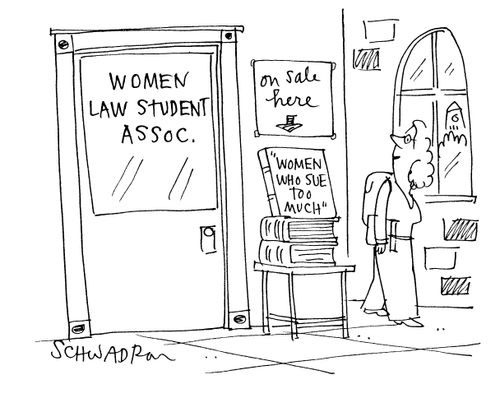 WOMEN
LAW STUDENT
ASSOC.
on sale
here
"WOMEN
WHO SUE
TOO
MUCH"
SCHWADRON